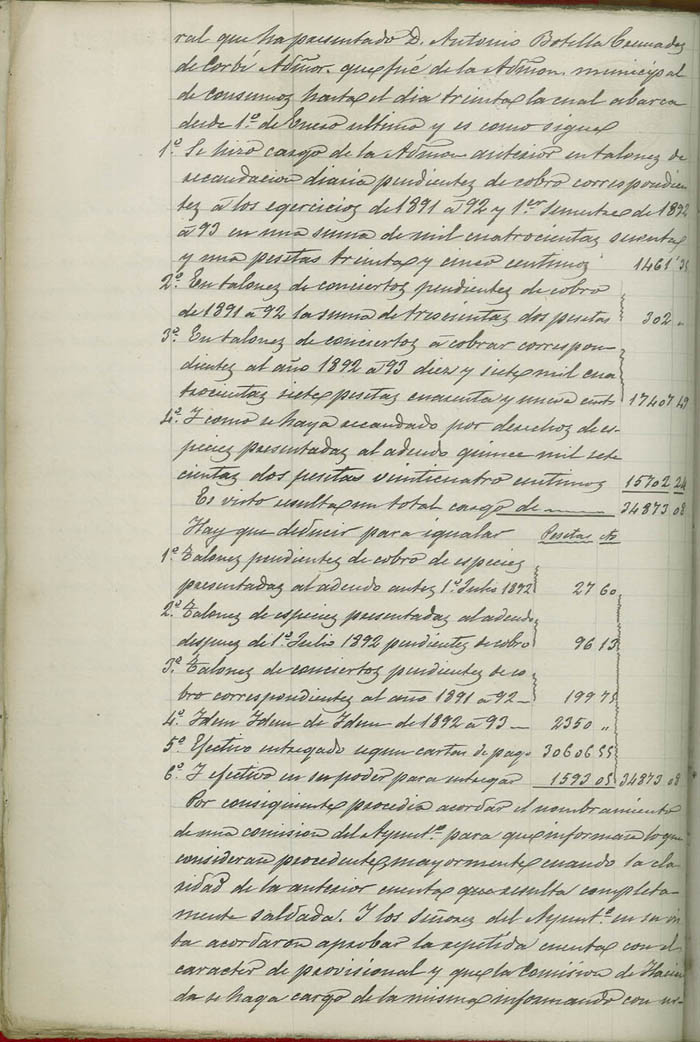 ral que ha presentado D. Antonio Botella Cennades
de Corbí Admor. que fué de la Admon. municipal
de consumos hasta el dia treinta la cual abarca
desde 1º de Enero ultimo y es como sigue
1º Se hizo cargo de la Admon anterior en talones de
recaudacion diaria pendientes de cobro correspondien
tes á los egercicios de 1891 á 92 y 1er Semestre de 1892
á 93 en una suma de mil cuatrocientas sesenta
y una pesetas treinta y cinco centimos 1461'35
2º En talones de conciertos pendientes de cobro
de 1891 á 92 la suma de trescientas dos pesetas 302 "
3º En talones de conciertos á cobrar correspon-
dientes al año 1892 á 93 diez y siete mil cua
trocientas siete pesetas cuarenta y nueve cents 17407 49
4º I como se haya recaudado por derechos de es-
pecies presentadas al adeudo quince mil sete
cientas dos pesetas veinticuatro centimos 15702 24
Es visto resulta un total cargo de 34873 08
Hay que deducir para igualar Pesetas cts
1º Talones pendientes de cobro de especies
presentadas al adeudo antes 1º Julio 1892 27 60
2º Talones de especies presentadas al adeudo
despues de 1º Julio 1892 pendientes de cobro 96 13
3º Talones de conciertos pendientes de co-
bro correspondientes al año 1891 á 92 - 199 75
4º Idem Idem de Idem de 1892 á 93 - 2350 "
5º Efectivo entregado segun cartas de pago 30606 55
6º I efectivo en su poder para entregar 1593 05 34873 08
Por consiguiente procedia acordar el nombramiento
de una comision del Ayuntº para que informara lo que
consideran procedente, mayormente cuando la cla
ridad de la anterior cuenta que resulta completa-
mente saldada. I los Señores del Ayuntº en su vis
ta acordaron aprobar la repetida cuenta con el
caracter de provisional y que la Comision de Hacien
da se haga cargo de la misma informando con us-